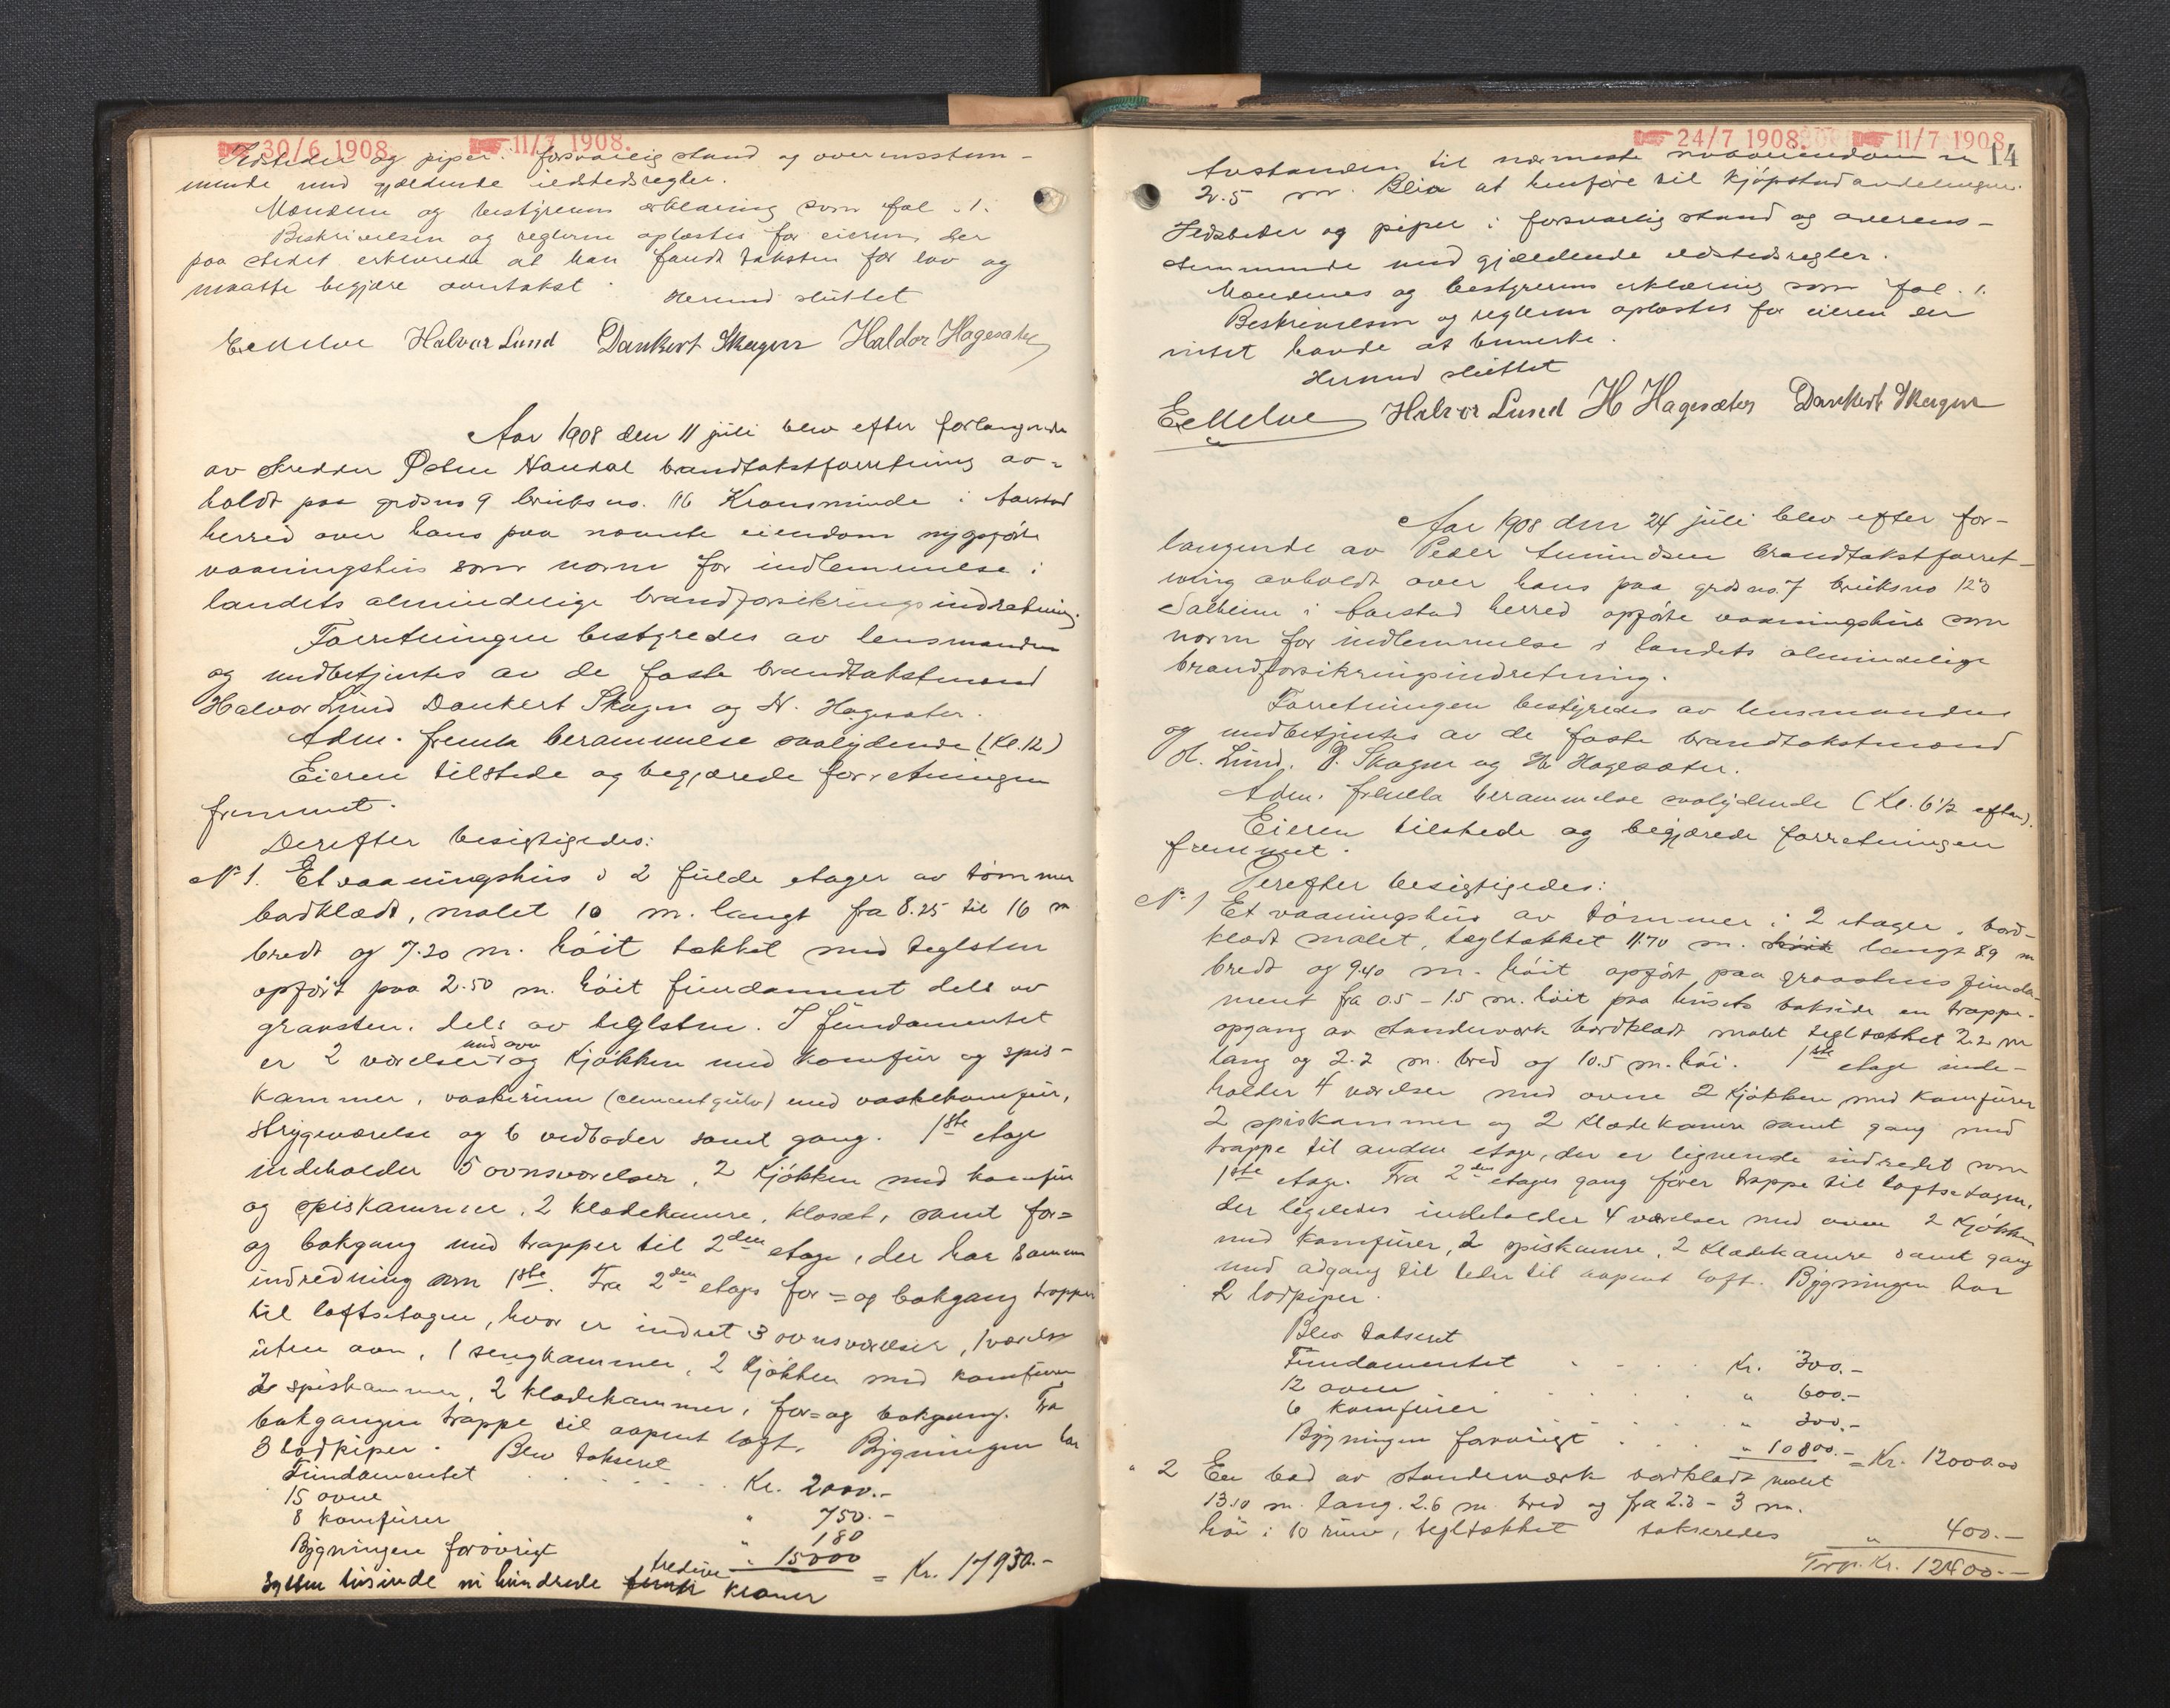 30/6 1908. 11/7 1908.
Ildsteder og piper i forsvarlig stand og overensstem-
mende med gjældende ildstedsregler.
Mændene og bestyrerens erklæring som fol. 1.
Beskrivelsen og reglerne oplæstes for eieren der
paa stedet erklærede at han fandt taksten for lav og
maatte begjære overtakst.
Hermed sluttet
Halvor Lund Dankert Skagen Haldor Hagesæter
Aar 1908 den 11 juli blev efter forlangende
av skredder Østen Haudal brandtakstforretning av=
holdt paa grdsno 9 bruksno. 116 Kronsminde i Aarstad
herred over hans paa nævnte eiendom nyopførte
vaaningshus som norm for indlemmelse i
landets almindelige brandforsikringsindretning.
Forretningen bestyredes av lensmanden
og medbetjentes av de faste brandtakstmænd
Halvor Lund Dankert Skagen og H. Hagesæter.
Adm. fremla berammelse saalydende (Kl.12)
Eieren tilstede og begjærede forretningen
fremmet.
Derefter besigtigedes:
No 1. Et vaaningshus i 2 fulde etager av tømmer
bordklædt, malet 10 m. langt fra 8.25 til 16 m
bredt og 7.20 m. høit tækket med teglsten
opført paa 2.50 m. høit fundament dels av
graasten, dels av teglsten. I fundamentet
er 2 værelser med ovn og kjøkken med komfur og spis-
kammer, vaskerum (cementgulv) med vaskekomfur,
strygeværelse og 6 vedboder samt gang. 1ste etage
indeholder 5 ovnsværelser, 2 kjøkken med komfur
og spiskammer, 2 klædekamre, kloset, samt for=
og bakgang med trapper til 2den etage, der har samme
indredning som 1ste. Fra 2den etages for= og bakgang trapper
til loftsetagen, hvor er indret 3 ovnsværelser, 1 værelse
uten ovn, 1 sengkammer, 2 kjøkken med komfurer
2 spiskammer, 2 klædekammer, for= og bakgang. Fra
bakgangen trappe til aapent loft. Bygningen har
3 lodpiper. Blev takseret
Fundamentet . . . . . Kr. 2000.-
15 ovne " 750.-
8 komfurer " 180
Bygningen forøvrigt " 15000 = Kr. 17930.-
Sytten tusinde ni hundrede tredive kroner
24/7 1908. 11/7 1908.
14
Avstanden til nærmeste naboeiendom er
2.5 m. Blir at henføre til kjøpstadavdelingen.
Ildsteder og piper i forsvarlig stand og overens-
stemmende med gjældende ildstedsregler.
Mændenes og bestyrerens erklæring som fol. 1.
Beskrivelsen og reglerne oplæstes for eieren der
intet havde at bemerke.
Hermed sluttet
Halvor Lund H Hagesæter Dankert Skagen
Aar 1908 den 24 juli blev efter for-
langende av Peder Amundsen brandtakstforret-
ning avholdt over hans paa grdsno. 7 bruksno 123
Solheim i Aarstad herred opførte vaaningshus som
norm for indlemmelse i landets almindelige
brandforsikringsindretning.
Forretningen bestyredes av lensmanden
og medbetjentes av de faste brandtakstmænd
H. Lund, D. Skagen og H. Hagesæter.
Adm. fremla berammelse saalydende (Kl. 6 1/2 efterm).
Eieren tilstede og begjærede forretningen
fremmet.
Derefter besigtigedes:
No 1 Et vaaningshus av tømmer i 2 etager, bord-
klædt malet, tegltækket 11.70 m. høit langt 8.9 m
bredt og 9.40 m. høit opført paa graastens funda-
ment fra 0.5 - 1.5 m. høit paa husets bakside en trappe-
opgang av standerværk bordklædt malet tegltækket 2.2 m
lang og 2.2 m. bred og 10.5 m. høi. 1ste etage inde-
holder 4 værelser med ovne 2 kjøkken med komfurer
2 spiskammer og 2 klædekamre samt gang med
trappe til anden etage, der er lignende indredet som
1ste etage. Fra 2den etages gang fører trappe til loftsetagen,
der ligeledes indeholder 4 værelser med ovne 2 kjøkken
med komfurer, 2 spiskamre, 2 klædekamre samt gang
med adgang til leder til aapent loft. Bygningen har
2 lodpiper.
Blev takseret
Fundamentet . . . . Kr. 300.-
12 ovne . . . . " 600.-
6 komfurer . . . . " 300.-
Bygningen forøvrigt . . . . " 10800.- = Kr. 12000.00
" 2 En bod av standerværk bordklædt malet
13.10 m. lang, 2.6 m bred og fra 2.3 - 3 m.
høi i 10 rum, tegltækket takseredes " 400.-
Trp. Kr. 12400.-